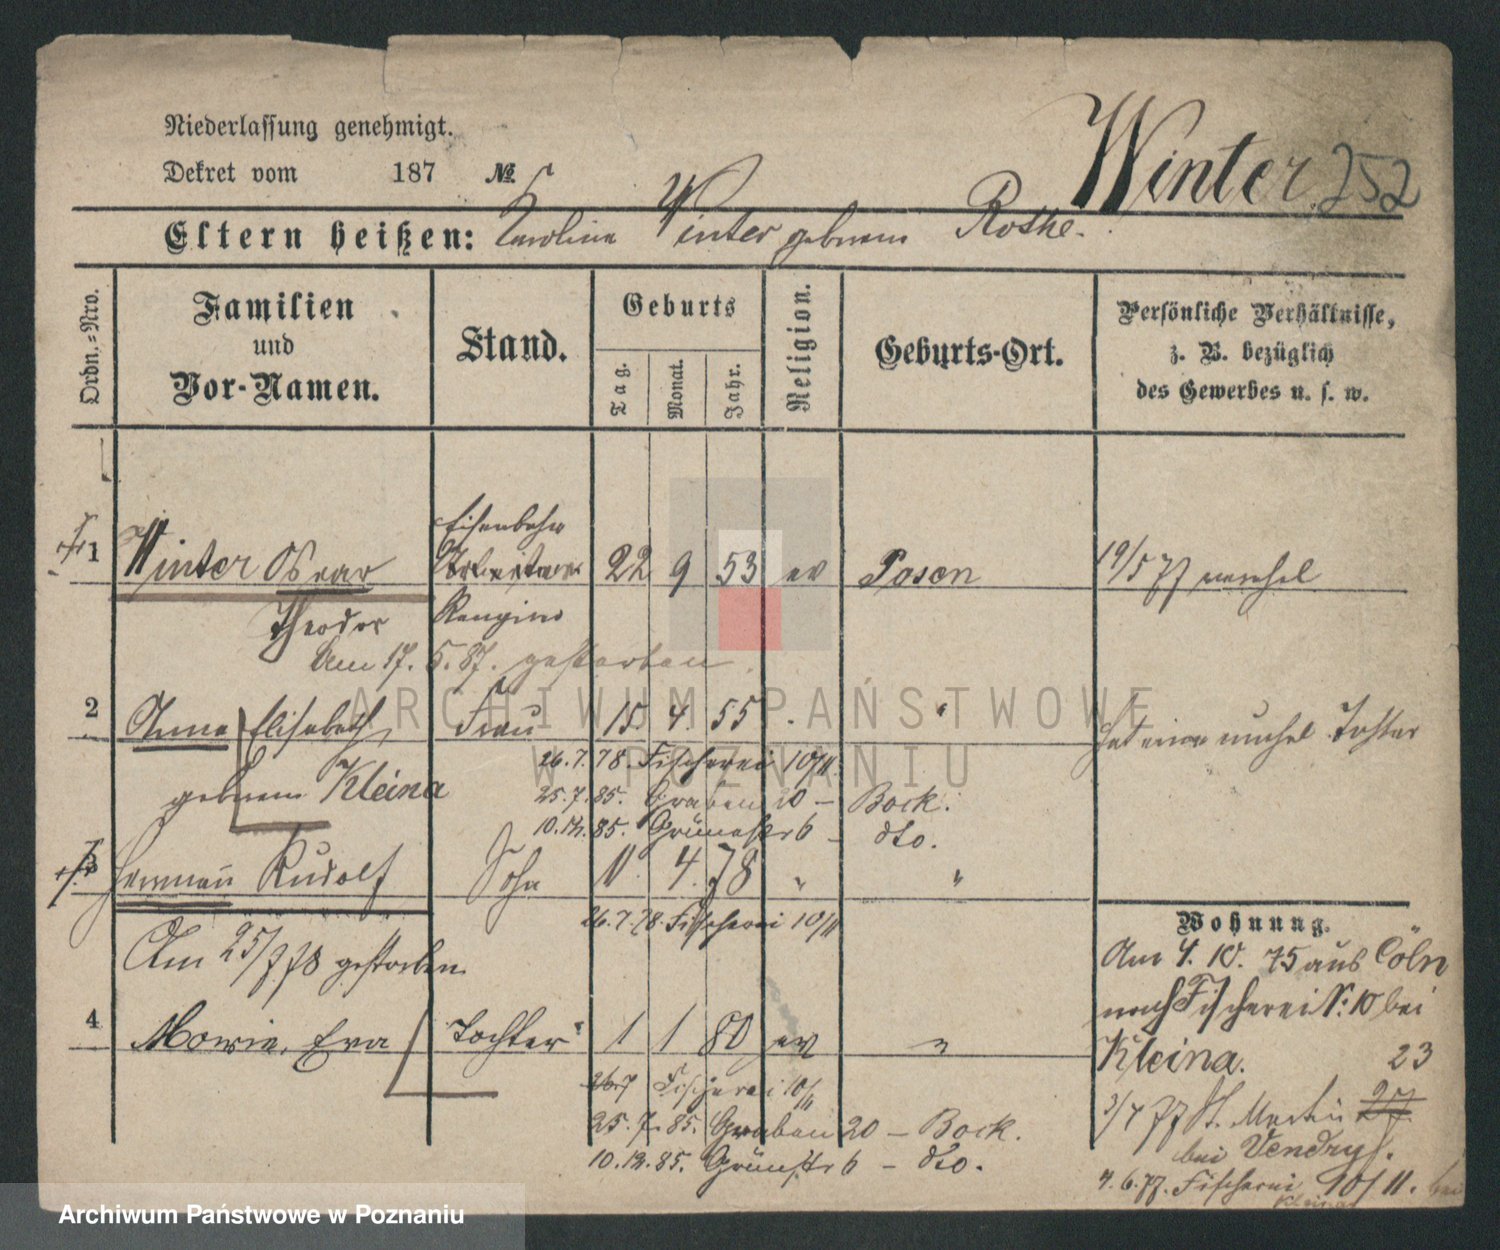 Niederlassung genehmigt.
Dekret vom 187 №
Winter 252
Eltern heißen: Karolina Winter geborene Rothe.
Ordn.=Nro.
Familien
und
Vor-Namen.
Stand.
Geburts
Tag.
Monat.
Jahr.
Religion.
Geburts-Ort.
Persönliche Verhältnisse,
z. B. bezüglich
des Gewerbes u. s. w.
Eisenbahn
1 Winter Oscar 22 9 53 ev Posen 19/5 77 verehel
Theodor
Am 17. 5. 87. gestorben.
2 Anna Elisabeth Frau 15. 4. 55 "
hat eine unehel Tochter
geborene Kleina
26.7.78. Fischerei 10/11
25.7.85. Graben 20 – Bock.
10.12.85. Grünestr 6 – dto.
3 Herman Rudolf Sohn 11. 4. 78 " "
26.7.78. Fischerei 10/11
Am 25/7 78 gestorben.
4 Marie, Eva Tochter 1 1 80 ev "
26.7 Fischerei 10/11
25.7.85. Graben 20 – Bock.
10.12.85. Grünstr 6 – dto.
Wohnung.
Am 4. 10. 75 aus Cöln
nach Fischerei N: 10 bei
Kleina. 23
3/4 77 St. Martin 27
bei Vendry.
4.6.77. Fischerei 10/11. bei
Kleina
ARCHIWUM PAŃSTWOWE
W POZNANIU
Archiwum Państwowe w Poznaniu